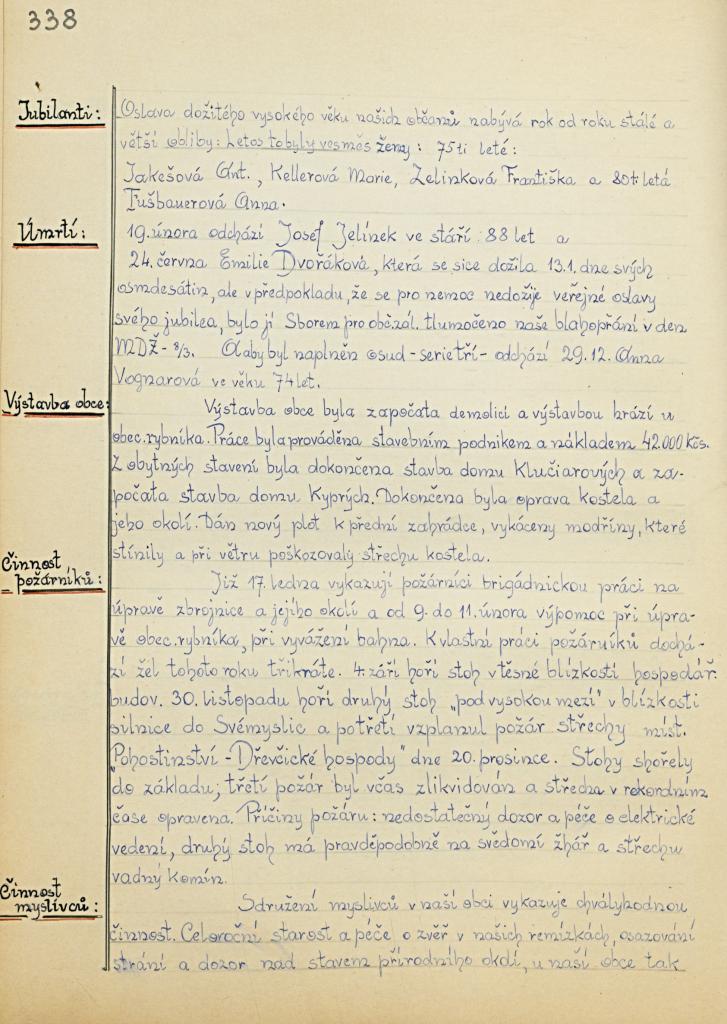 338
Jubilanti:
Oslava dožitého vysokého věku našich občanů nabývá rok od roku stálé a
větší obliby: Letos to byly vesměs ženy: 75ti leté:
Jakešová Ant., Kellerová Marie, Zelinková Františka a 80ti letá
Fušbauerová Anna.
Úmrtí:
19. února odchází Josef Jelínek ve stáří 88 let a
24. června Emilie Dvořáková, která se sice dožila 13.1. dne svých
osmdesátin, ale v předpokladu, že se pro nemoc nedožije veřejné oslavy
svého jubilea, bylo jí Sborem pro obč. zál. tlumočeno naše blahopřání v den
MDŽ - 8/3. A aby byl naplněn osud - serie tří - odchází 29.12. Anna
Vognarová ve věku 74 let.
Výstavba obce:
Výstavba obce byla započata demolicí a výstavbou hrází u
obec. rybníka. Práce byla prováděna stavebním podnikem a nákladem 42 000 Kčs.
Z obytných stavení byla dokončena stavba domu Klučiarových a za-
počata stavba domu Kyprých. Dokončena byla oprava kostela a
jeho okolí. Dán nový plot k přední zahrádce, vykáceny modříny, které
stínily a při větru poškozovaly střechu kostela.
Činnost
požárníků:
Již 17. ledna vykazují požárníci brigádnickou práci na
úpravě zbrojnice a jejího okolí a od 9. do 11. února výpomoc při úpra-
vě obec. rybníka, při vyvážení bahna. K vlastní práci požárníků dochá-
zí žel tohoto roku třikráte. 4. září hoří stoh v těsné blízkosti hospodář.
budov. 30. listopadu hoří druhý stoh "pod vysokou mezí" v blízkosti
silnice do Svémyslic a potřetí vzplanul požár střechy míst.
"Pohostinství - Dřevčické hospody" dne 20. prosince. Stohy shořely
do základu; třetí požár byl včas zlikvidován a střecha v rekordním
čase opravena. Příčiny požáru: nedostatečný dozor a péče o elektrické
vedení, druhý stoh má pravděpodobně na svědomí žhář a střechu
vadný komín.
Činnost
myslivců:
Sdružení myslivců v naší obci vykazuje chvályhodnou
činnost. Celoroční starost a péče o zvěř v našich remízkách, osazování
strání a dozor nad stavem přírodního okolí, u naší obce tak